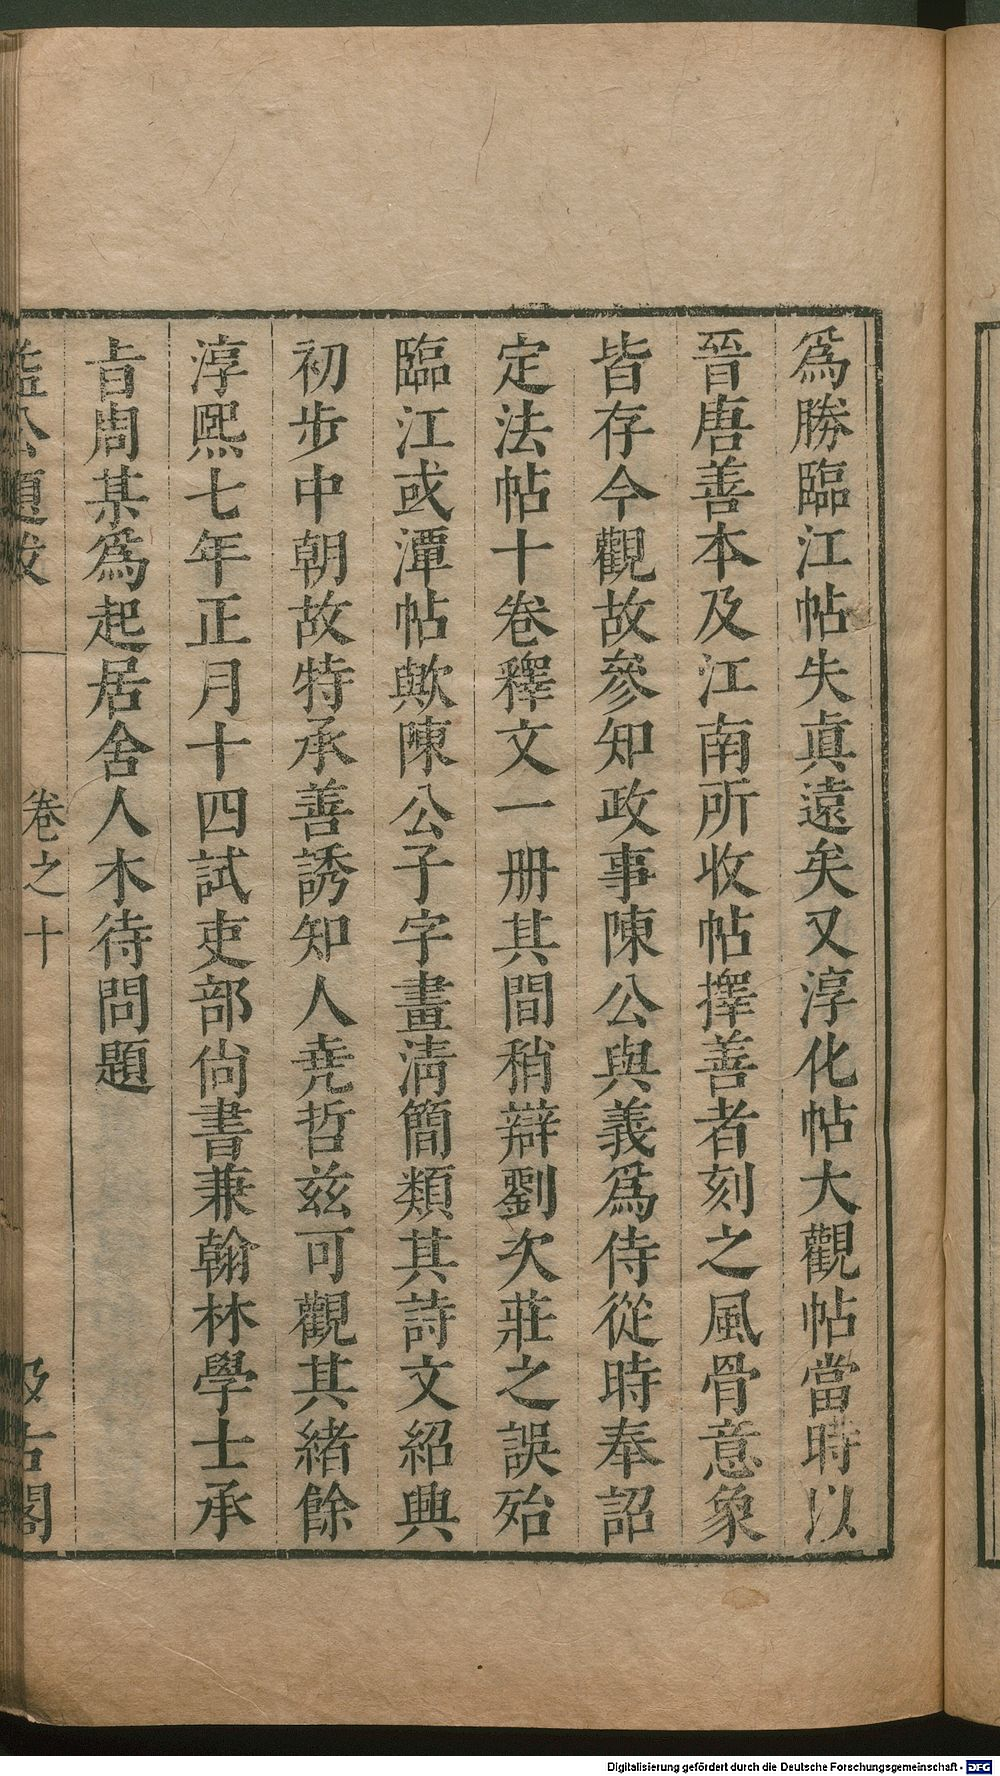 爲勝臨江帖失眞遠矣又淳化帖大觀帖當時以
晉唐善本及江南所收帖擇善者刻之風骨意象
皆存今觀故參知政事陳公與義爲侍從時奉詔
定法帖十卷釋文一册其間稍辯劉次莊之誤殆
臨江或潭帖歟陳公子字畫淸簡類其詩文紹興
初步中朝故特承善誘知人堯哲兹可觀其緒餘
淳熙七年正月十四試吏部尙書兼翰林學士承
㫖周某爲起居舍人木待問題
益公題跋
卷之十
汲古閣
Digitalisierung gefördert durch die Deutsche Forschungsgemeinschaft - DFG